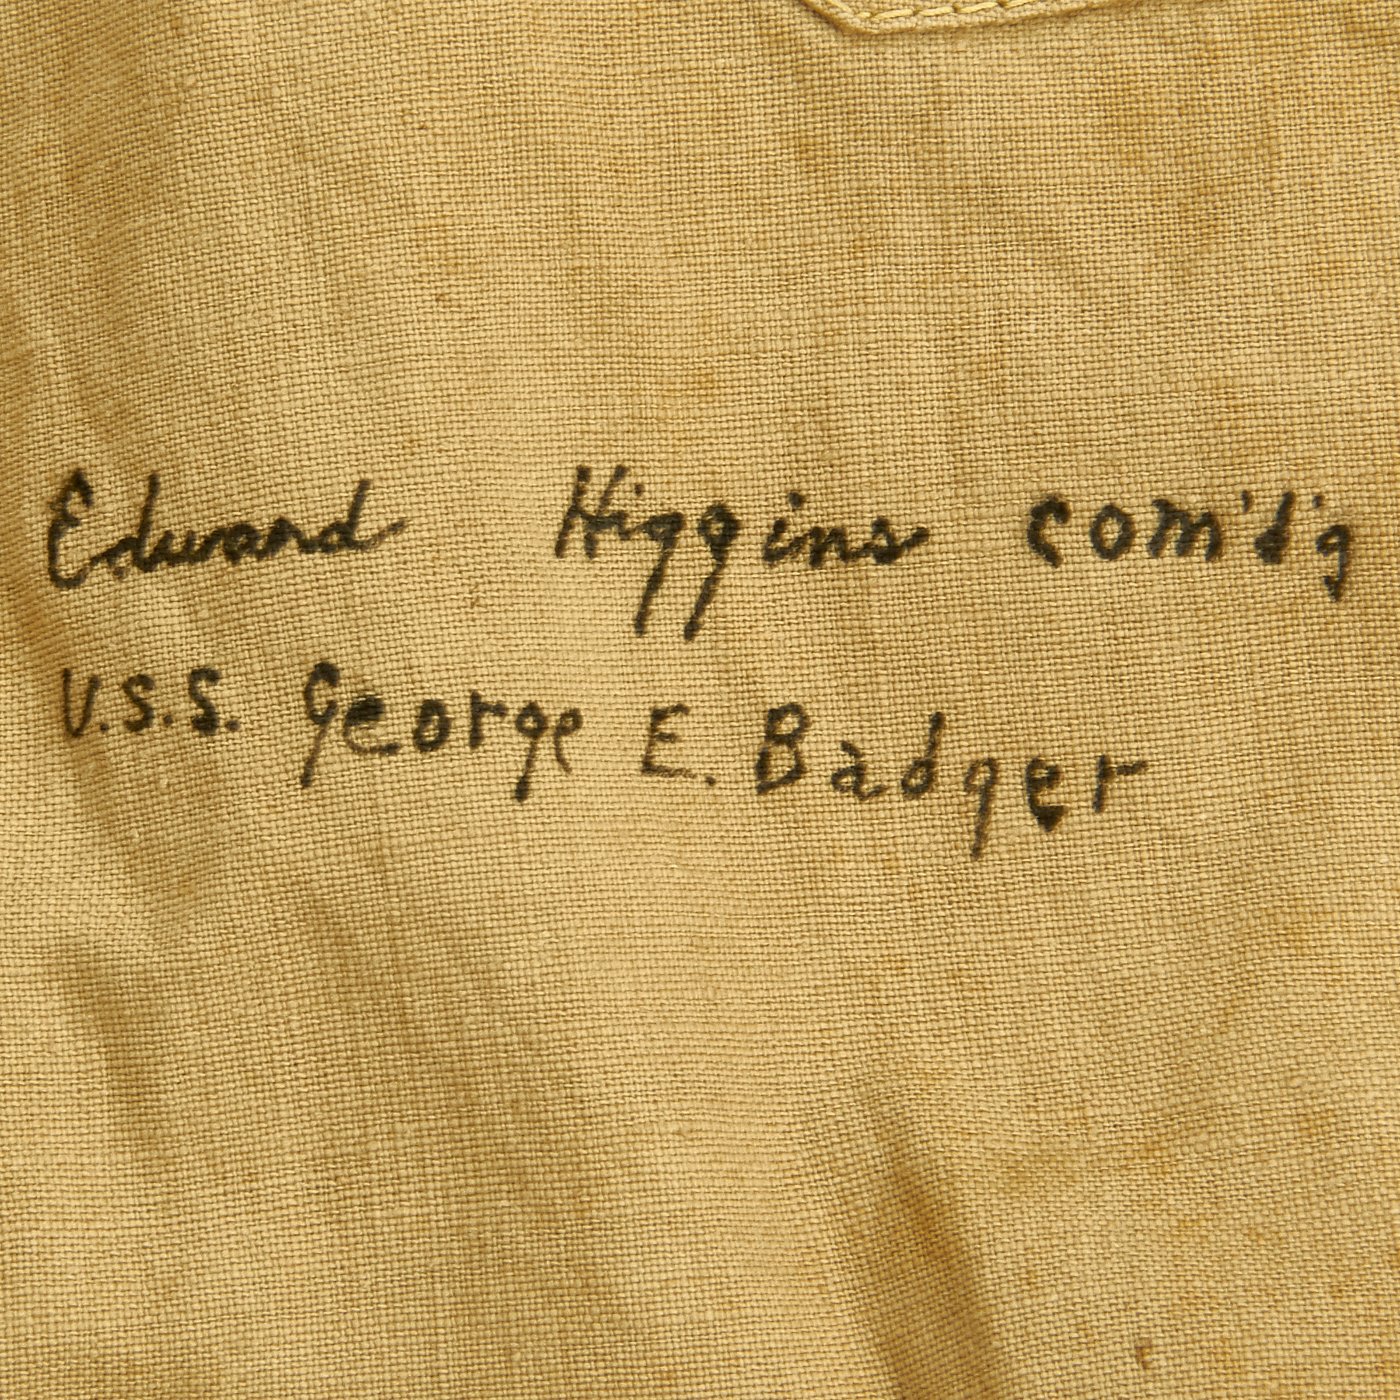 Edward Higgins com'd'g
U.S.S. George E. Badger